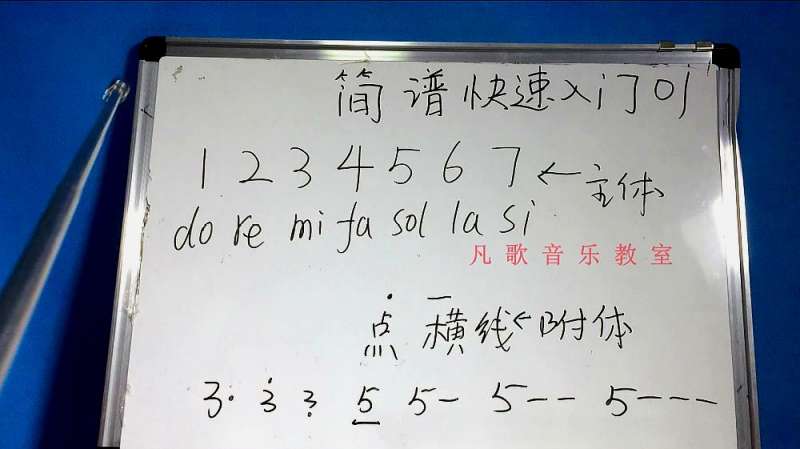 简谱快速入门01
1 2 3 4 5 6 7 ← 主体
do re mi fa sol la si
凡歌音乐教室
点 横线 ← 附体
3· 3̇ 3̣ 5̲ 5– 5–– 5–––